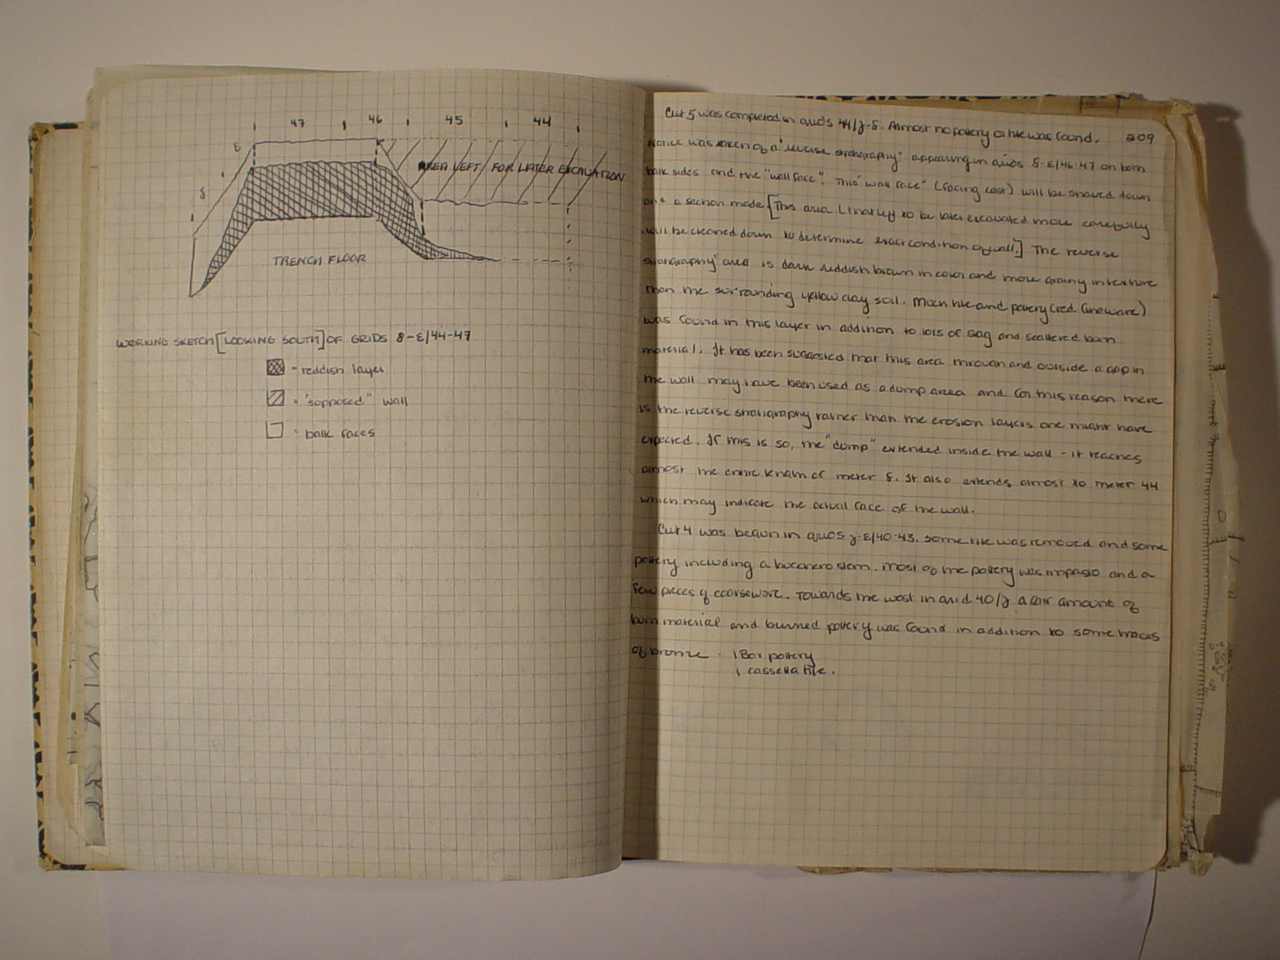 47 46 45 44
ε
δ
AREA LEFT FOR LATER EXCAVATION
TRENCH FLOOR
WORKING SKETCH [LOOKING SOUTH] OF GRIDS δ-ε/44-47
= reddish layer
= "supposed" wall
= balk faces
209
Cut 5 was completed in grids 44/γ-δ. Almost no pottery or tile was found.
Notice was taken of a "reverse stratigraphy" appearing in grids δ-ε/46-47 on both
balk sides and the "wall face". This "wall face" (facing east) will be shaved down
and a section made [This area (that left to be later excavated more carefully
will be cleaned down to determine exact condition of wall.] The reverse
stratigraphy" area is dark reddish brown in color and more grainy in texture
than the surrounding yellow clay soil. Much tile and pottery (red fineware)
was found in this layer in addition to lots of slag and scattered burn
material. It has been suggested that this area through and outside a gap in
the wall may have been used as a dump area and for this reason there
is the reverse stratigraphy rather than the erosion layers one might have
expected. If this is so, the "dump" extended inside the wall - it reaches
almost the entire length of meter δ. It also extends almost to meter 44
which may indicate the actual face of the wall.
Cut 4 was begun in grids γ-ε/40-43. Some tile was removed and some
pottery including a bucchero stem. Most of the pottery was impasto and a
few pieces of coarseware. Towards the west in grid 40/γ a fair amount of
burn material and burned pottery was found in addition to some traces
of bronze. 1 Box pottery
1 cassetta tile.